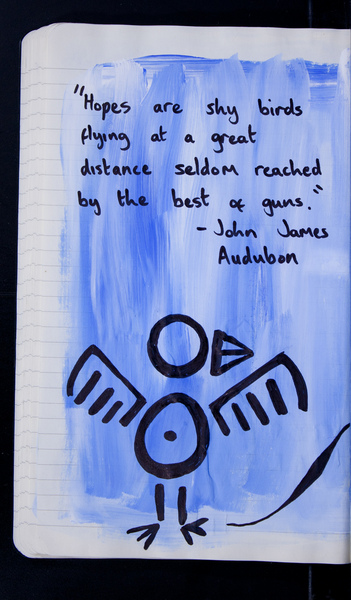 "Hopes are shy birds
flying at a great
distance seldom reached
by the best of guns."
- John James
Audubon